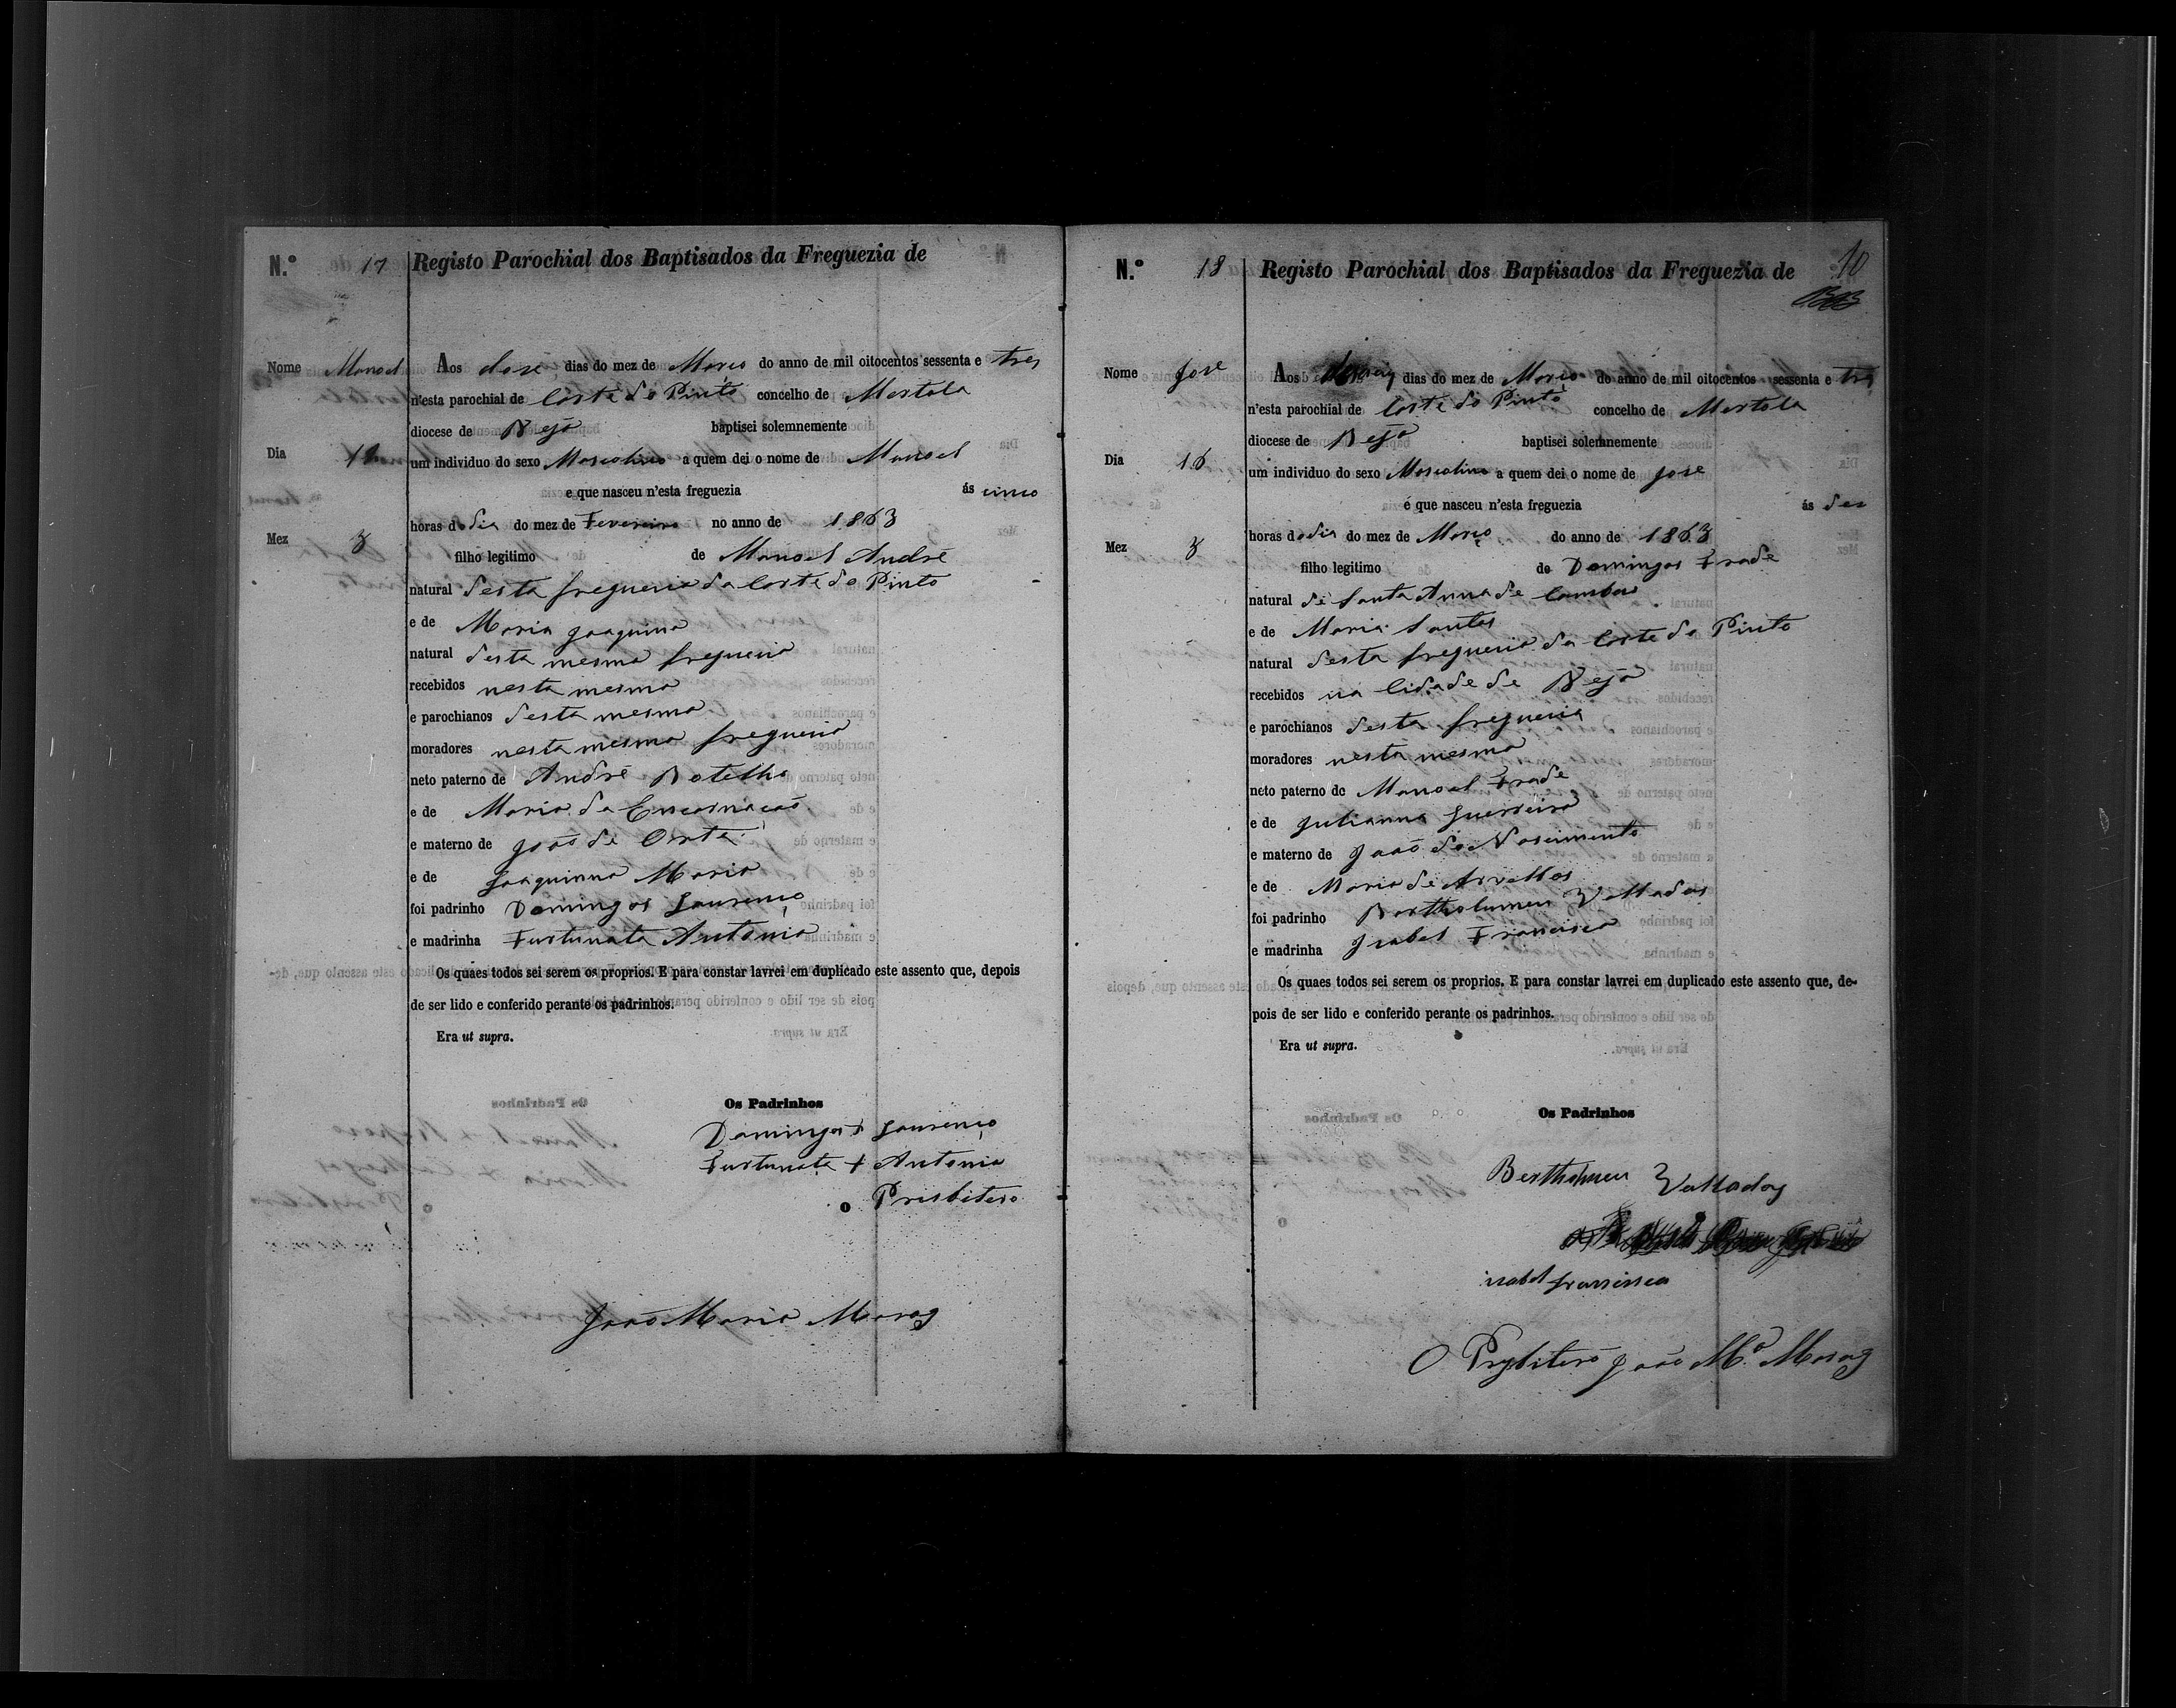 N.º 17 Registo Parochial dos Baptisados da Freguezia de
Nome Manoel
Aos dose dias do mez de Março do anno de mil oitocentos sessenta e tres
n'esta parochial de Corte do Pinto concelho de Mertola
diocese de Beja baptisei solemnemente
Dia 12
um individuo do sexo Mascolino a quem dei o nome de Manoel
e que nasceu n'esta freguezia ás cinco
Mez 3
horas do dia do mez de Fevereiro no anno de 1863
filho legitimo de Manoel André
natural desta freguesia da Corte do Pinto
e de Maria Joaquina
natural desta mesma freguesia
recebidos nesta mesma
e parochianos desta mesma
moradores nesta mesma freguesia
neto paterno de André Botelho
e de Maria da Encarnação
e materno de João de Orta
e de Joaquinna Maria
foi padrinho Domingos Lourenço
e madrinha Furtunata Antonia
Os quaes todos sei serem os proprios. E para constar lavrei em duplicado este assento que, depois
de ser lido e conferido perante os padrinhos.
Era ut supra.
Os Padrinhos
Domingos + Lourenço
Furtunata + Antonia
o Presbitero
João Maria
N.º 18 Registo Parochial dos Baptisados da Freguezia de 10
Nome Jose
Aos dias do mez de Março do anno de mil oitocentos sessenta e tres
n'esta parochial de Corte do Pinto concelho de Mertola
diocese de Beja baptisei solemnemente
Dia 16
um individuo do sexo Mascolino a quem dei o nome de Jose
e que nasceu n'esta freguezia ás des
Mez 3
horas do dia do mez de Março do anno de 1863
filho legitimo de Domingos Frade
natural de Santa Anna de Cambas
e de Maria Santos
natural desta freguesia da Corte do Pinto
recebidos na Cidade de Beja
e parochianos desta freguesia
moradores nesta mesma
neto paterno de Manoel Frade
e de Julianna Guerreira
e materno de João do Nascimento
e de Maria de Arvellos
foi padrinho Bartholumeu Valladas
e madrinha Isabel Francisca
Os quaes todos sei serem os proprios. E para constar lavrei em duplicado este assento que, de-
pois de ser lido e conferido perante os padrinhos.
Era ut supra.
Os Padrinhos
Bertholumeu Valladas
isabel francisca
O João M.ª